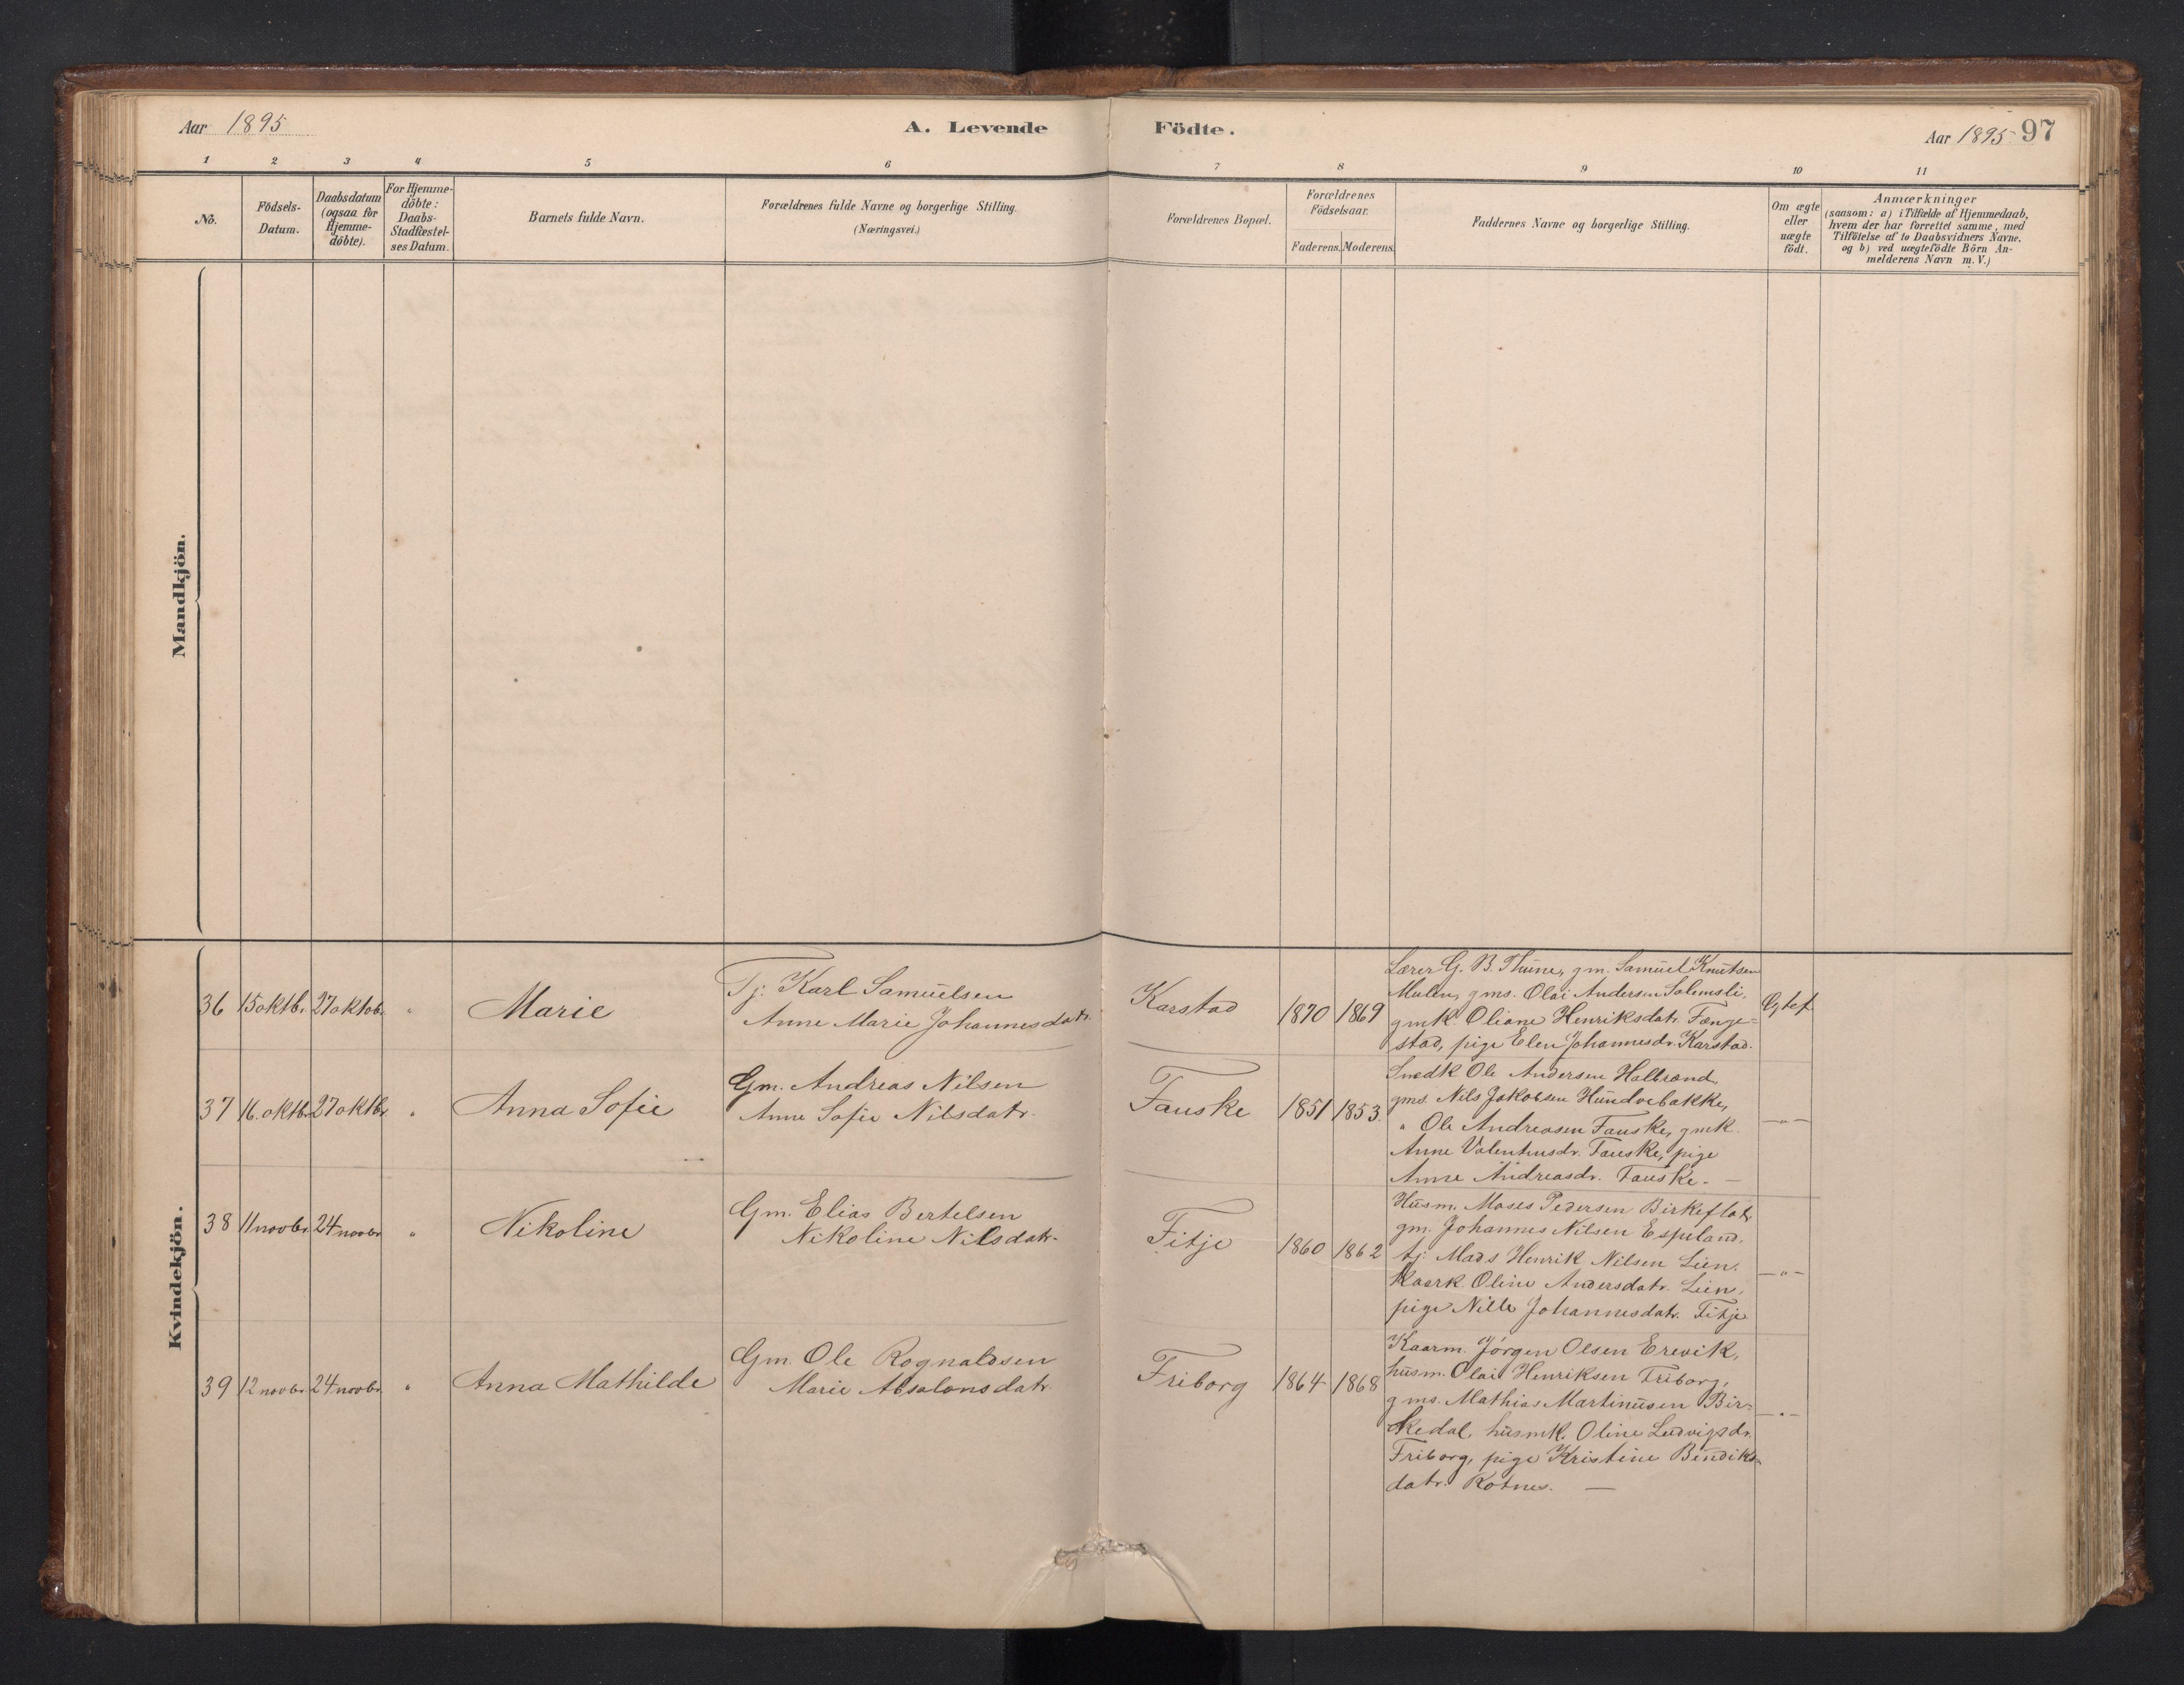 Aar 1895
A. Levende
Födte.
Aar 1895
97
1 2 3 4 5 6 7 8 9 10 11
No.
Födsels-
Datum.
Daabsdatum
(ogsaa for
Hjemme-
döbte).
For Hjemme-
döbte:
Daabs-
Stadfæstel-
ses Datum.
Barnets fulde Navn.
Forældrenes fulde Navne og borgerlige Stilling.
(Næringsvei.)
Forældrenes Bopæl.
Forældrenes
Födselsaar.
Faderens. Moderens.
Faddernes Navne og borgerlige Stilling.
Om ægte
eller
uægte
födt.
Anmærkninger
(saasom: a) i Tilfælde af Hjemmedaab,
hvem der har forrettet samme, med
Tilföielse af to Daabsvidners Navne.
og b) ved uægtefödte Börn An-
melderens Navn m. V.)
Mandkjön.
Kvindekjön.
36 15 oktb. 27 oktob. " Marie
Tj. Karl Samuelsen
Anne Marie Johannesdatr.
Karstad 1870 1869
Lærer G. B. Thune, gm. Samuel Knutsen
Mulen, gms. Olai Andersen Solemsli,
gmk. Oliane Henriksdatr. Fænge-
stad, pige Elen Johannesdr. Karstad.
Egtef.
37 16. oktbr. 27 oktbr. " Anna Sofie
Gm. Andreas Nilsen
Anne Sofie Nilsdatr.
Fauske 1851 1853.
Snedk Ole Andersen Halbrænd,
gms. Nils Jakobsen Hundvebakke,
" Ole Andreasen Fauske, gmk.
Anne Valentinsdr. Fauske, pige
Anne Andreasdr. Fauske. —
—"—
38 11 novbr. 24 novbr. " Nikoline
Gm. Elias Bertelsen
Nikoline Nilsdatr.
Fitje 1860 1862
Husm. Moses Pedersen Birkeflot,
gm. Johannes Nilsen Espeland.
tj. Mads Henrik Nilsen Lien.
Kaark. Oline Andersdatr. Lien,
pige Nille Johannesdatr. Fitje
—"—
39 12 novbr. 24 novbr. " Anna Mathilde
Gm. Ole Rognaldsen
Marie Absalonsdatr.
Friborg 1864 1868
Kaarm. Jörgen Olsen Erevik,
husm. Olai Henriksen Friborg,
gms. Mathias Martinusen Bir-
kedal, husmk. Oline Ludvigsdr.
Friborg, pige Kristine Bendiks-
datr. Rotnes. —
—"—